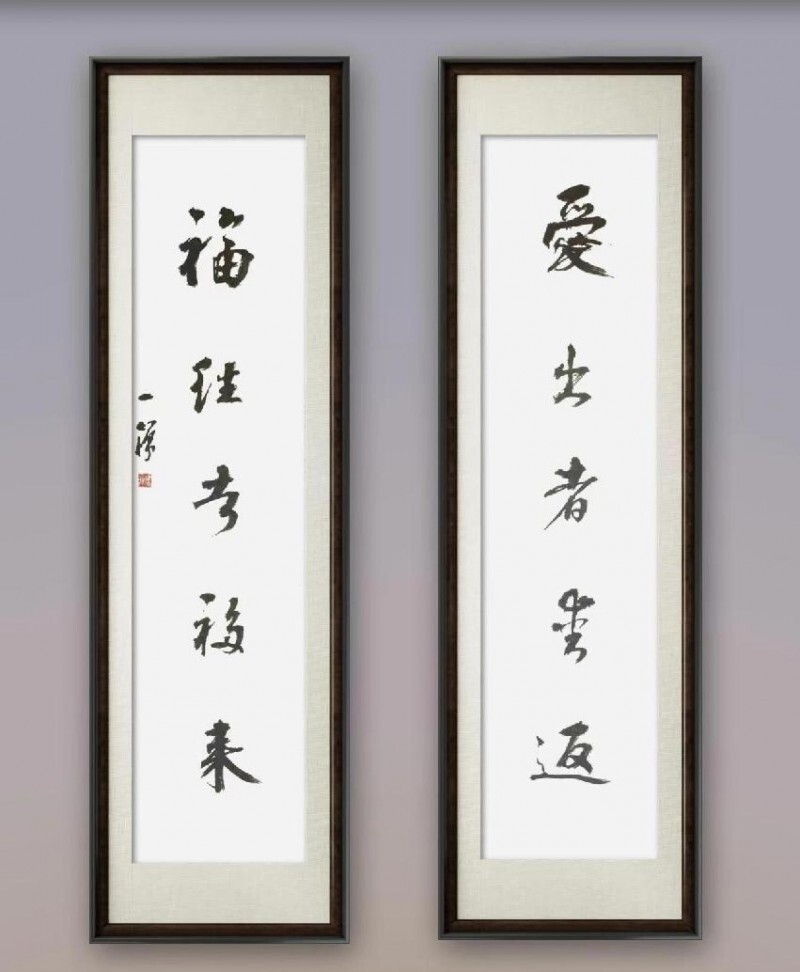 愛出者愛返
福往者福来
一